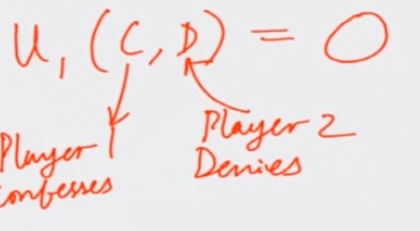 u₁ (C, D) = 0
Player 1
Confesses
Player 2
Denies